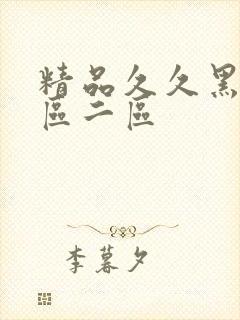 精品久久黑
區二區
李暮夕